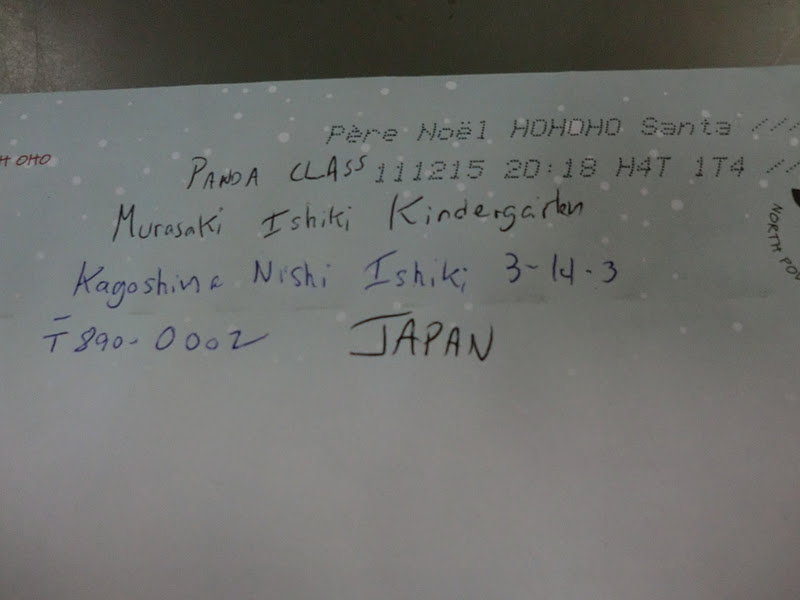 Père Noël HOHOHO Santa ///
H OHO
PANDA CLASS 111215 20:18 H4T 1T4 //
Murasaki Ishiki Kindergarten
NORTH PO
Kagoshima Nishi Ishiki 3-14-3
〒890-0002 JAPAN